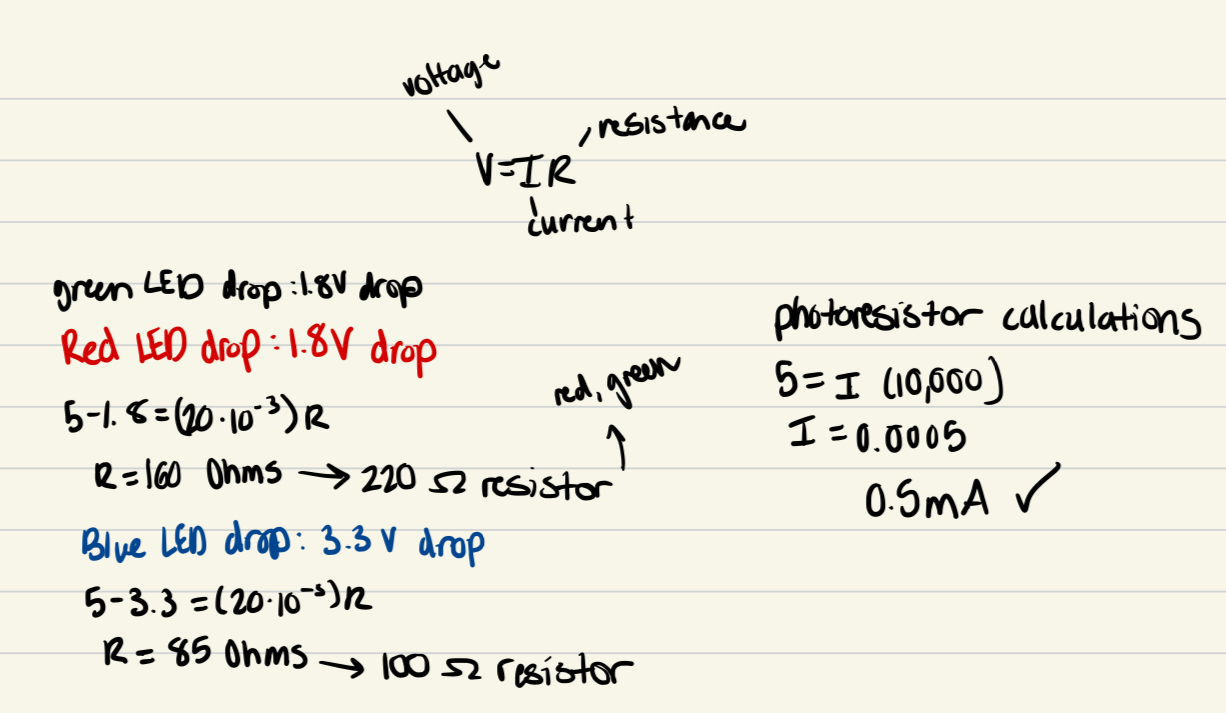 voltage
resistance
V=IR
current
green LED drop: 1.8V drop
Red LED drop: 1.8V drop
5-1.8=(20·10⁻³)R
red, green
R=160 Ohms → 220 Ω resistor
Blue LED drop: 3.3 V drop
5-3.3=(20·10⁻³)R
R= 85 Ohms → 100 Ω resistor
photoresistor calculations
5= I (10,000)
I=0.0005
0.5mA ✓